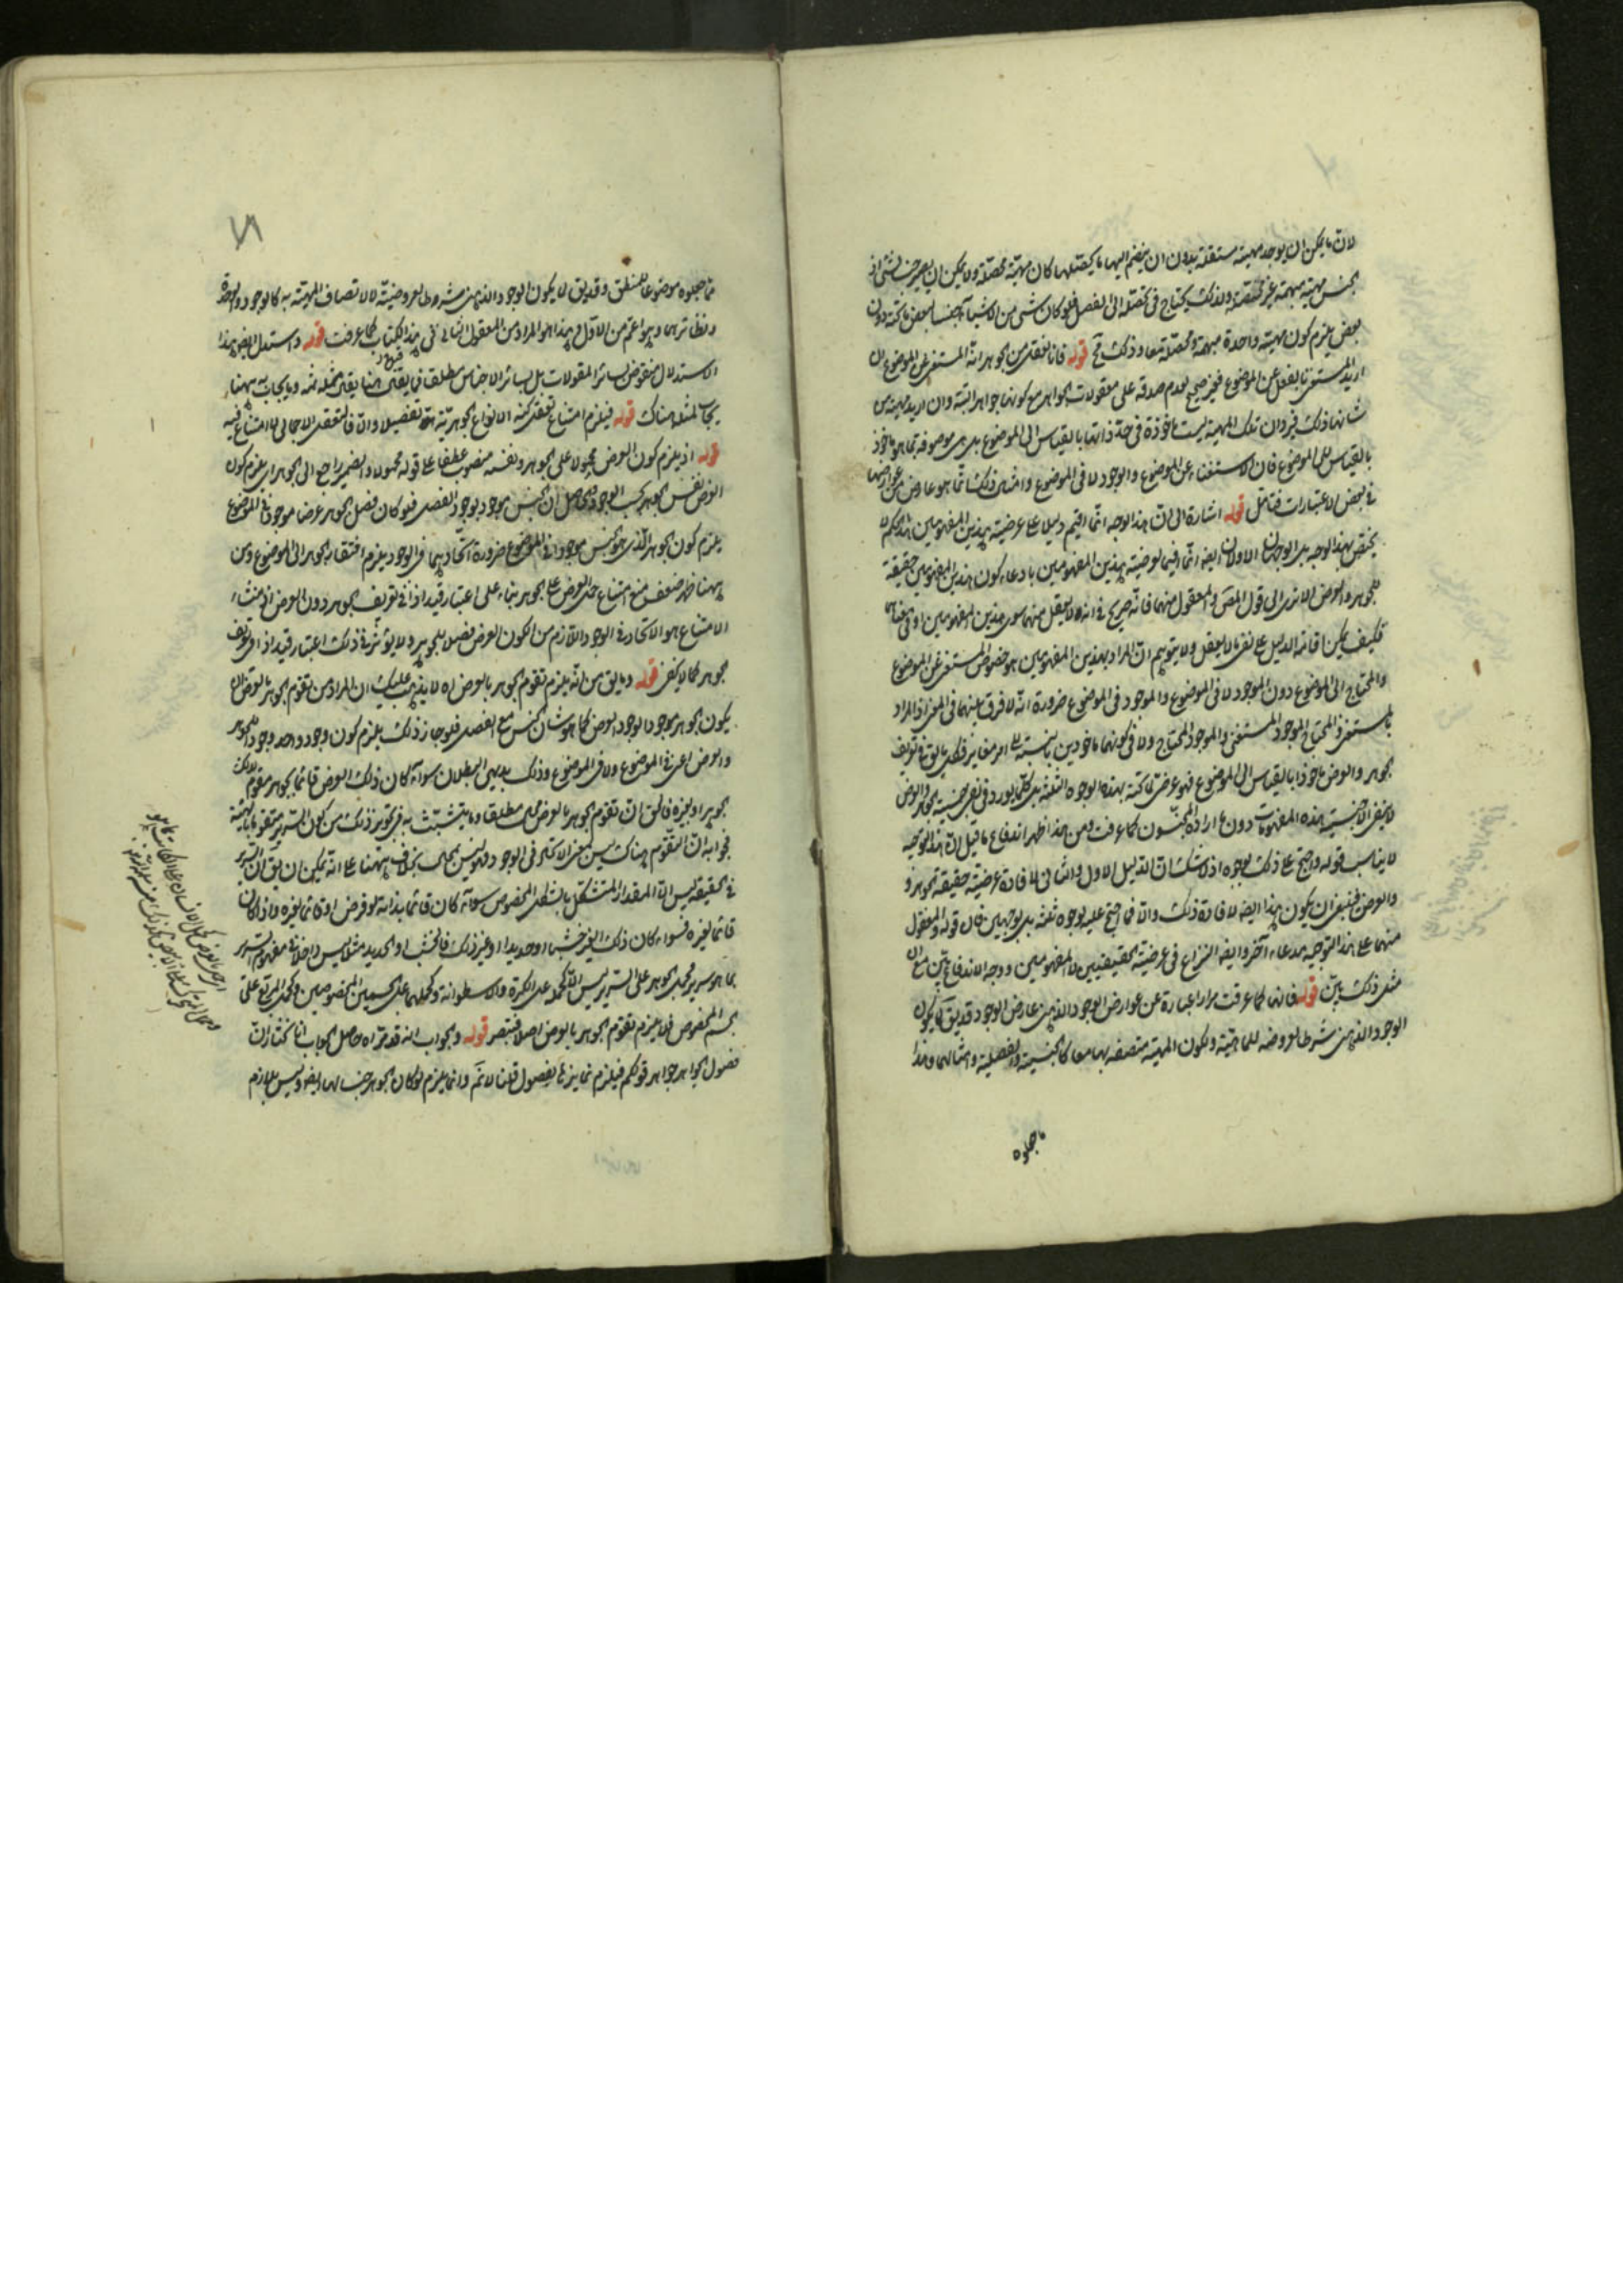 لان ما يمكن ان يوجد مهية مستقلة بدون ان ينضم اليها ما يحصلها كان مهية محصلة ولا يمكن ان يصير جنسا لشئ اذ
الجنس مهية مبهمة غير محصلة ولذلك يحتاج في تحصله الى الفصل فلو كان شئ من الاشياء جنسا لبعض ما تحته دون
بعض يلزم كون مهية واحدة مبهمة ومحصلة معا وذلك مح قوله فانا نعقل من الجوهر انه المستغنى عن الموضوع ان
اريد المستغنى بالفعل عن الموضوع فغير صحيح لعدم صدقه على معقولات الجواهر مع كونها جواهر البتة وان اريد مهية من
شانها ذلك فيرد ان تلك المهية ليست ماخوذة في حد ذاتها بالقياس الى الموضوع بل هى موصوفة بما هو ماخوذ
بالقياس الى الموضوع فان الاستغناء عن الموضوع والوجود لا فى الموضوع وامثال ذلك انما هو عارض من عوارضها
في بعض الاعتبارات فتامل قوله اشارة الى ان هذا الوجه انما اقيم دليلا على عرضية هذين المفهومين هذا الحكم لا
يختص بهذا الوجه بل الوجهان الاولان ايضا انما اقيما لعرضية هذين المفهومين بادعاء كون هذين المفهومين حقيقة
للجوهر والعرض الا ترى الى قول المص والمعقول منهما فانه صريح في انه لا يعقل منهما سوى هذين المفهومين او فى معناهما
فكيف يمكن اقامة الدليل على نفى ما لا يعقل ولا يتوهم ان المراد بهذين المفهومين هو خصوص المستغنى عن الموضوع
والمحتاج الى الموضوع دون الموجود لا فى الموضوع والموجود فى الموضوع ضرورة انه لا فرق بينهما فى المعنى اذ المراد
بالمستغنى والمحتاج الموجود المستغنى والموجود المحتاج ولا فى كونهما ماخوذين بالنسبة الى امر مغاير فكل ما يقع فى تعريف
الجوهر والعرض ماخوذا بالقياس الى الموضوع فهو عرضى لما تحته بهذه الوجوه الثلثة بل كل ما يورد فى نفى جنسية الجوهر والعرض
لا ينفى الا جنسية هذه المفهومات دون ما اراده المجنسون كما عرفت ومن هذا ظهر اندفاع ما قيل ان هذا التوجيه
لا يناسب قوله واحتج على ذلك بوجوه اذ لا شك ان الدليل الاول والثانى لافادة عرضية حقيقة الجوهر و
والعرض فينبغى ان يكون هذا ايضا لافادة ذلك والا فما احتج عليه بوجوه ثلثة بل بوجهين فان قوله والمعقول
منهما على هذا التوجيه مدعاء آخر وايضا النزاع فى عرضية الحقيقتين لا المفهومين ووجه الاندفاع
مثل ذلك بين قوله فانها كما عرفت مرارا عبارة عن عوارض الوجود الذهنى عارض الوجود قد يق لما يكون
الوجود الذهنى شرطا لعروضه للماهية ولكون المهية متصفة بها معا كالجنسية والفصلية وامثالهما وهذا
ما جعلوه
٧١
مما جعلوه موضوعا للمنطق وقد يق لا يكون الوجود الذهنى شرطا لعروضيته لا لاتصاف المهية به كالوجود والوحدة
ونظائرهما وهو اعم من الاول وهذا هو المراد من المعقول الثانى فى هذا الكتاب كما عرفت قوله واستدل ايضا بهذا
الاستدلال منقوض بسائر المقولات بل بسائر الاجناس مطلقا فما يقال هنا يقال بمثله ثمه وما يجاب به هناء
يجاب بمثله هناك قوله فيلزم امتناع تعقل كنه الانواع الجوهرية تفصيلا والا فالتعقل الاجمالى لا امتناع فيه
قوله اذ يلزم كون العرض محمولا على الجوهر ونفسه منصوب عطفا على قوله محمولا والضمير راجع الى الجوهر اى يلزم كون
العرض نفس الجوهر بحسب الوجود وحاصل ان الجنس موجود بوجود الفصل فلو كان فصل الجوهر عرضا موجودا فى الموضوع
يلزم كون الجوهر الذى هو الجنس موجودا فى الموضوع ضرورة اتحادهما فى الوجود يلزم افتقار الجوهر الى الموضوع ومن
ههنا ظهر ضعف منع امتناع حمل العرض على الجوهر بناء على اعتبار قيد اذا فى تعريف الجوهر دون العرض اذ منشاء
الامتناع هو الاتحاد فى الوجود اللازم من كون العرض فصلا للجوهر ولا يؤثر فى ذلك اعتبار قيد اذا فى تعريف
الجوهر كما لا يخفى قوله وما يق من انه يلزم تقوم الجوهر بالعرض اه لا يذهب عليك ان المراد من تقوم الجوهر بالعرض ان
يكون الجوهر موجودا بوجود العرض كما هو شان الجنس مع الفصل فلو جاز ذلك يلزم كون وجود واحد وجود الجوهر
والعرض اعنى فى الموضوع ولا فى الموضوع وذلك بديهى البطلان سواء كان ذلك العرض قائما بجوهر مقوم لذلك
الجوهر او بغيره فالحق ان تقوم الجوهر بالعرض مطلقا وما يتشبث به فى تجويز ذلك من كون السرير متقوما بالهيئة
فجوابه ان التقوم هناك ليس بمعنى الاتحاد فى الوجود وليس بحمل بخلاف ههنا على انه يمكن ان يق ان السرير
فى الحقيقة ليس الا المقدار المتشكل بالشكل المخصوص سواء كان قائما بذاته لو فرض او قائما بغيره واذا كان
قائما بغيره فسواء كان ذلك الغير خشبا او حديدا او غير ذلك فالخشب او الحديد مثلا ليس داخلا فى مفهوم السرير
بما هو سرير فحمل الجوهر على السرير ليس الا كحمله على الكرة والاسطوانة وكحلهما على الجسمين المخصوصين وكحمل المربع على
الجسم المخصوص فلا يلزم تقوم الجوهر بالعرض اصلا فتبصر قوله والجواب انه قد مر اه حاصل الجواب انا نختار ان
فصول الجواهر جواهر قولكم فيلزم تمايزها بفصول قلنا لا نم وانما يلزم لو كان الجوهر جنسا لها ايضا وليس بلازم